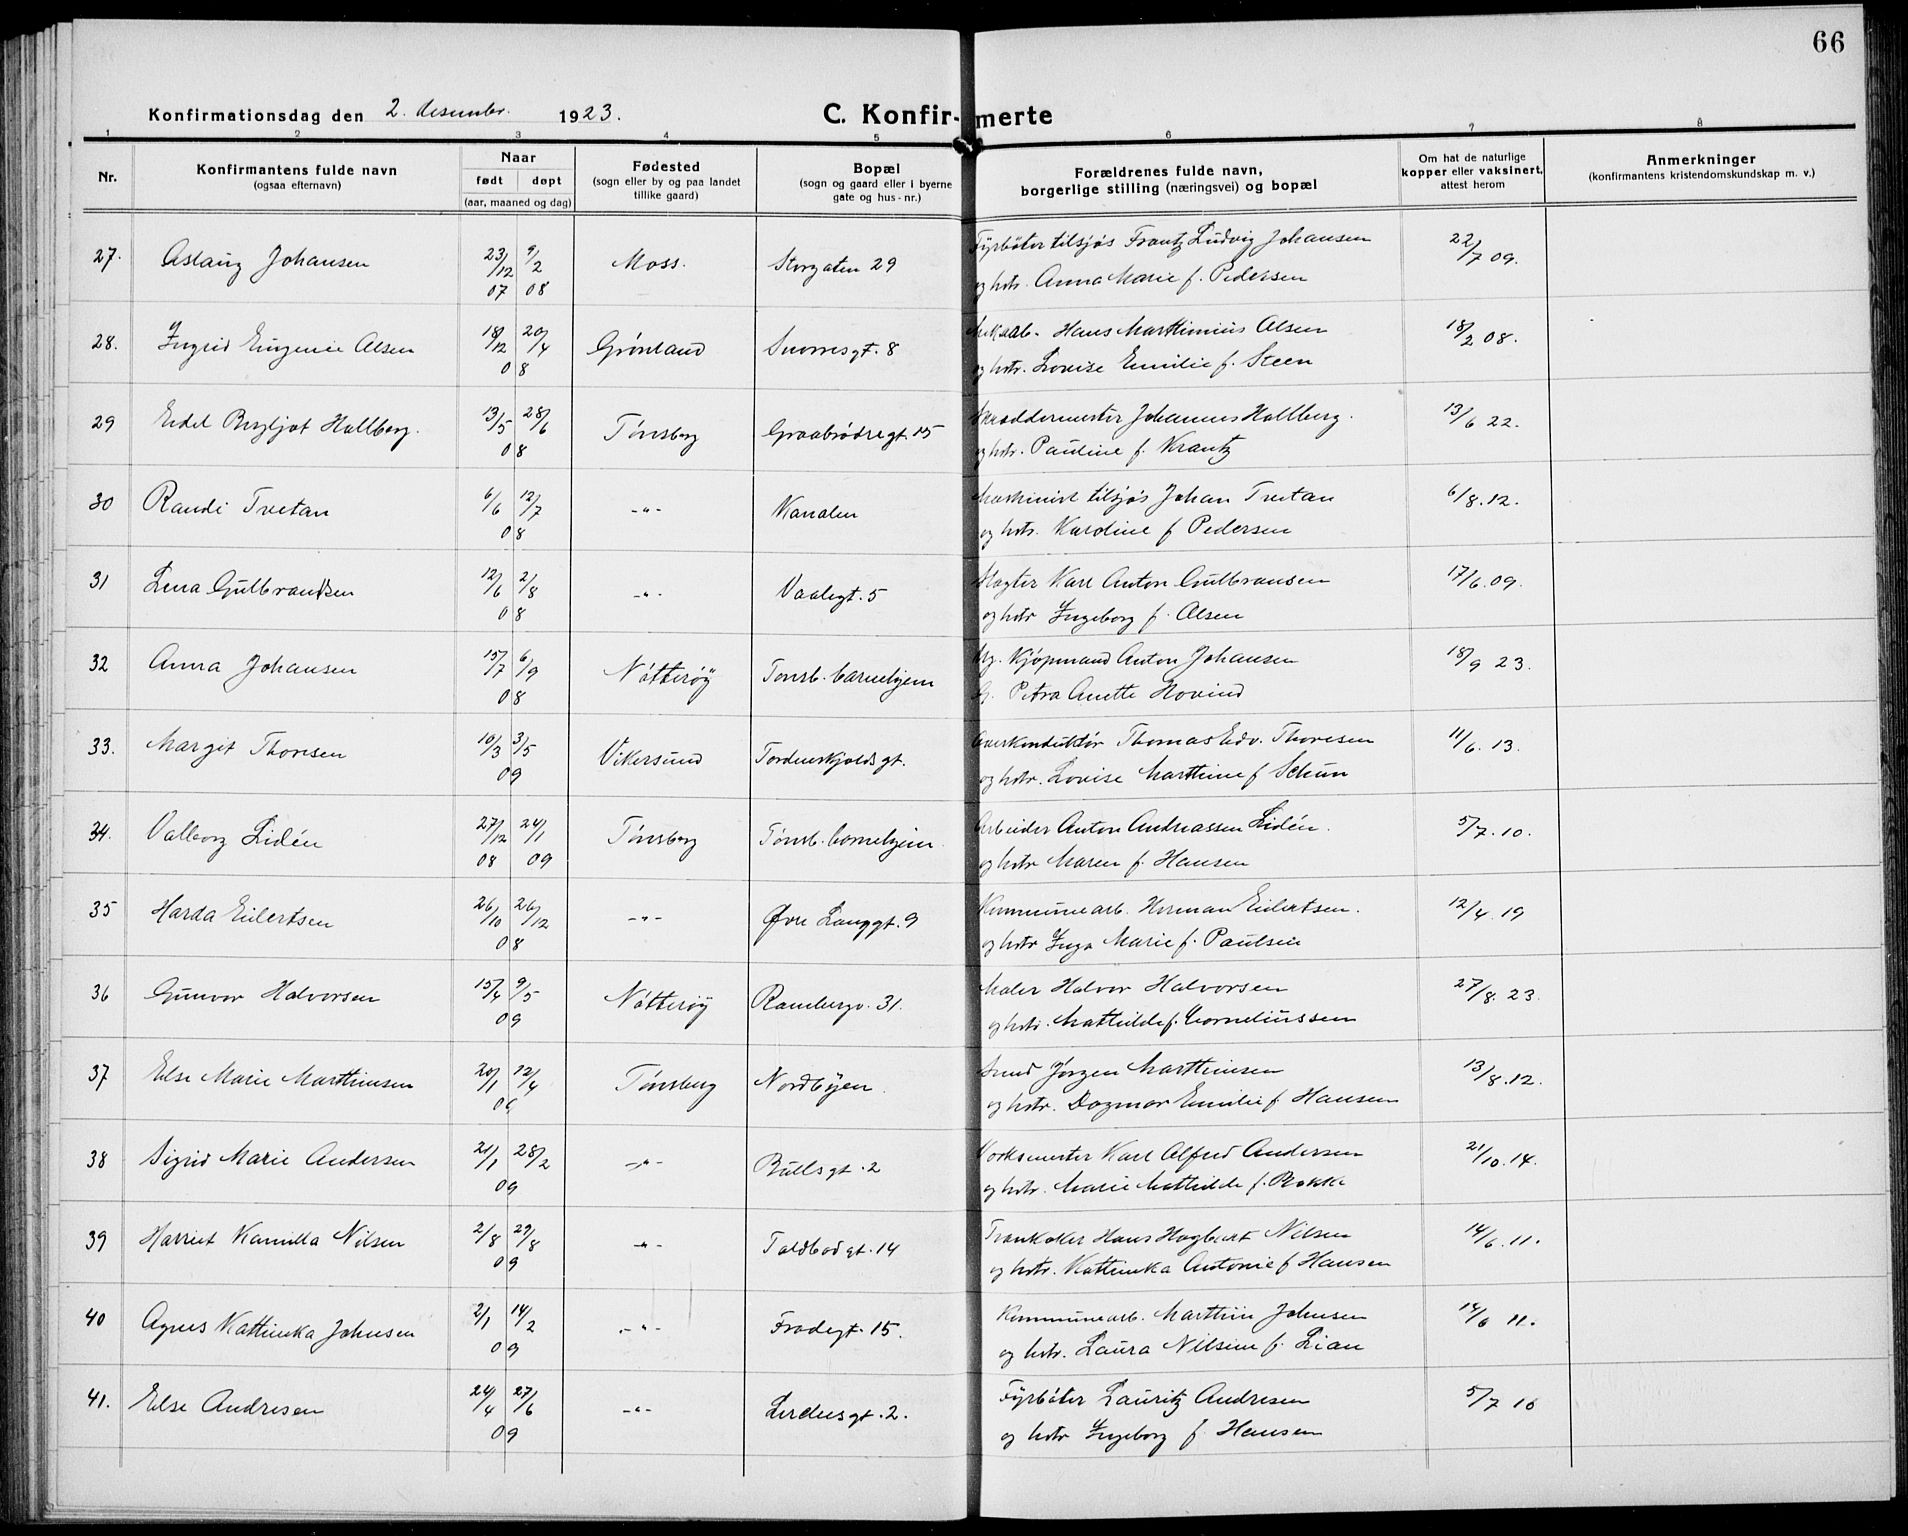 66
Konfirmationsdag den 2. desembr. 1923. C. Konfir- merte
1 2 3 4 5 6 7 8
Nr. Konfirmantens fulde navn (ogsaa efternavn) Naar født døpt (aar, maaned og dag) Fødested (sogn eller by og paa landet tillike gaard) Bopæl (sogn og gaard eller i byerne gate og hus-nr.) Forældrenes fulde navn, borgerlige stilling (næringsvei) og bopæl Om hat de naturlige kopper eller vaksinert, attest herom Anmerkninger (konfirmantens kristendomskundskap m. v.)
27. Aslaug Johansen 23/12 07 9/2 08 Moss. Storgaten 29 Fyrbøter tilsjøs Frantz Ludvig Johansen 22/7 09.
og hstr. Anna Marie f. Pedersen
28. Ingrid Eugenie Olsen 18/12 20/4 08 Grønland Snorresgt. 8 Hans Marthinius Olsen 18/2 08.
og hstr. Lovise Emilie f. Steen
29 Eidel Bergljot Hallberg. 13/5 28/6 08 Tønsberg Graabrødregt. 15 Skræddermester Johannes Hallberg. 13/6 22.
og hstr. Pauline f. Krantz
30 Randi Tvetan 6/6 12/7 08 -"- Kanalen Maskinist tilsjøs Johan Tvetan 6/8. 12.
og hstr. Karoline f Pedersen
31 Lena Gulbrandsen 12/6 2/8 08 -"- Vaalegt. 5 Slagter Karl Anton Gulbransen 17/6. 09.
og hstr Ingeborg f. Olsen
32 Anna Johansen 15/7 6/9 08 Nøtterøy Tønsb. barnehjem Ug. Kjøpmand Anton Johansen 18/9 23.
G. Petra Anette Hovind
33. Margit Thoresen 10/3 3/5 09 Vikersund Tordenskjoldsgt. Overkonduktør Thomas Edv. Thoresen 11/6. 13.
og hstr. Lovise Marthine f Schun
34. Valborg Lidén 27/12 08 24/1 09 Tønsberg Tønsb. barnehjem. Arbeider Anton Andreassen Lidén. 5/7. 10.
og hstr Maren f. Hansen
35 Harda Eilertsen 26/10 26/12 08 -"- Øvre Langgt. 9 Kommunearb. Herman Eilertsen. 12/4. 19
og hstr Inga Marie f. Paulsen
36 Gunvor Halvorsen 15/4 9/5 09 Nøtterøy Rambergv. 31. Maler Halvor Halvorsen 27/8. 23.
og hstr. Mathilde f. Corneliussen
37 Else Marie Marthinsen 20/1 12/4 09 Tønsberg Nordbyen. Smed Jørgen Marthinsen 13/8. 12.
og hstr. Dagmar Emilie f Hansen
38 Sigrid Marie Andersen 21/1 28/2 09 -"- Bullsgt. 2 Verksmester Karl Alfred Andersen 21/10. 14.
og hstr. Marie Mathilde f. Bakke
39 Harriet Kamilla Nilsen 2/8 29/8 09 -"- Toldbodgt. 14 Trankoker Hans Hagbart Nilsen 14/6. 11.
og hstr. Kathinka Antonie f Hansen
40 Agnes Kathinka Johnsen 2/1 14/2 09 -"- Frodegt. 15. Kommunearb. Marthin Johnsen 14/6 11.
og hstr. Laura Nilsine f. Lian
41. Else Andresen 24/4 27/6 09 -"- Lerchesgt. 2. Fyrbøter Lauritz Andresen 5/7 16
og hstr Ingeborg f Hansen